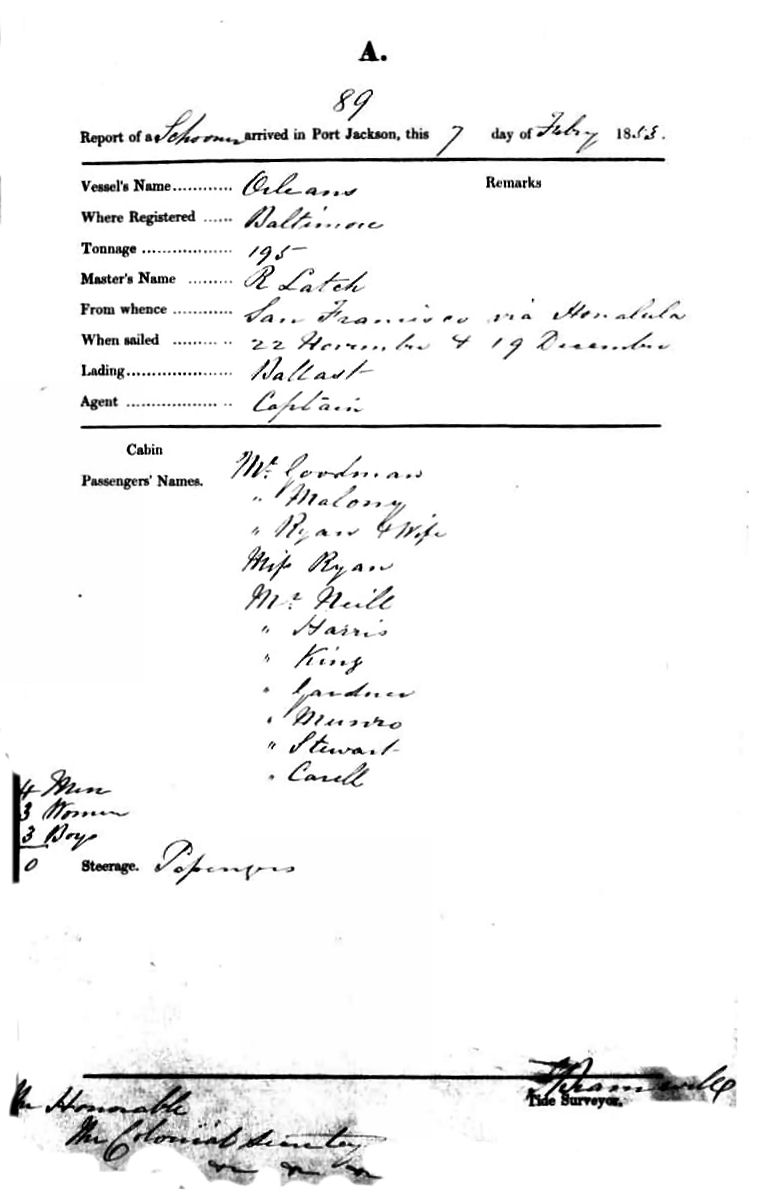 A.
89
Report of a Schooner arrived in Port Jackson, this 7 day of Febry 1853.
Vessel's Name............ Orleans Remarks
Where Registered ...... Baltimore
Tonnage .................. 195
Master's Name ......... R Latch
From whence ............ San Francisco via Honalula
When sailed ......... .. 22 November & 19 December
Lading..................... Ballast
Agent .................. .. Captain
Cabin
Passengers' Names. Mr. Goodman
" Malony
" Ryan & Wife
Miss Ryan
Mr. Neill
" Harris
" King
" Gardner
" Munro
" Stewart
" Carell
4 Men
3 Women
3 Boys
0 Steerage. Passengers
Tide Surveyor.
The Honorable
The Colonial Secretary